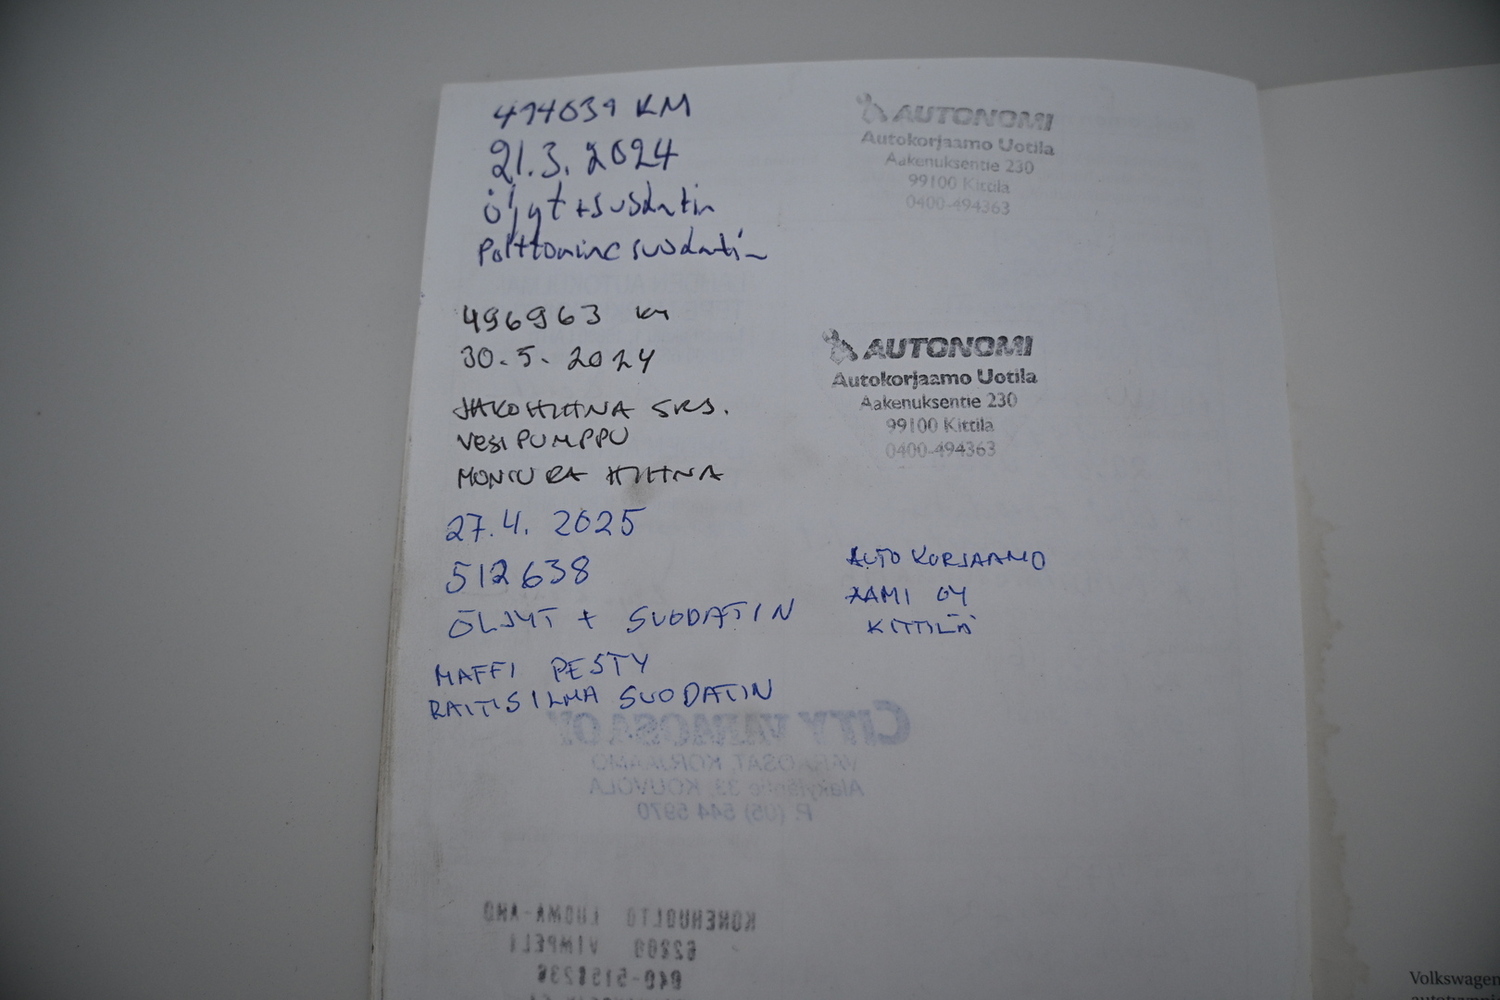 494039 KM
21.3. 2024
öljyt + suodatin
polttoaine suodatin
AUTONOMI
Autokorjaamo Uotila
Aakenuksentie 230
99100 Kittilä
0400-494363
496963 km
30.5. 2024
JAKOHIHNA SRJ.
VESIPUMPPU
MONIURA HIHNA
AUTONOMI
Autokorjaamo Uotila
Aakenuksentie 230
99100 Kittilä
0400-494363
27.4. 2025
512638
ÖLJYT + SUODATIN
MAFFI PESTY
RAITISILMA SUODATIN
AUTOKORJAAMO
XAMI OY
KITTILÄ
CITY VARAOSA OY
VARAOSAT, KORJAAMO
Alakyläntie 33, KOUVOLA
P. (05) 544 5970
KONEHUOLTO LUOMA-AHO
62800 VIMPELI
040-5158236
Volkswagen